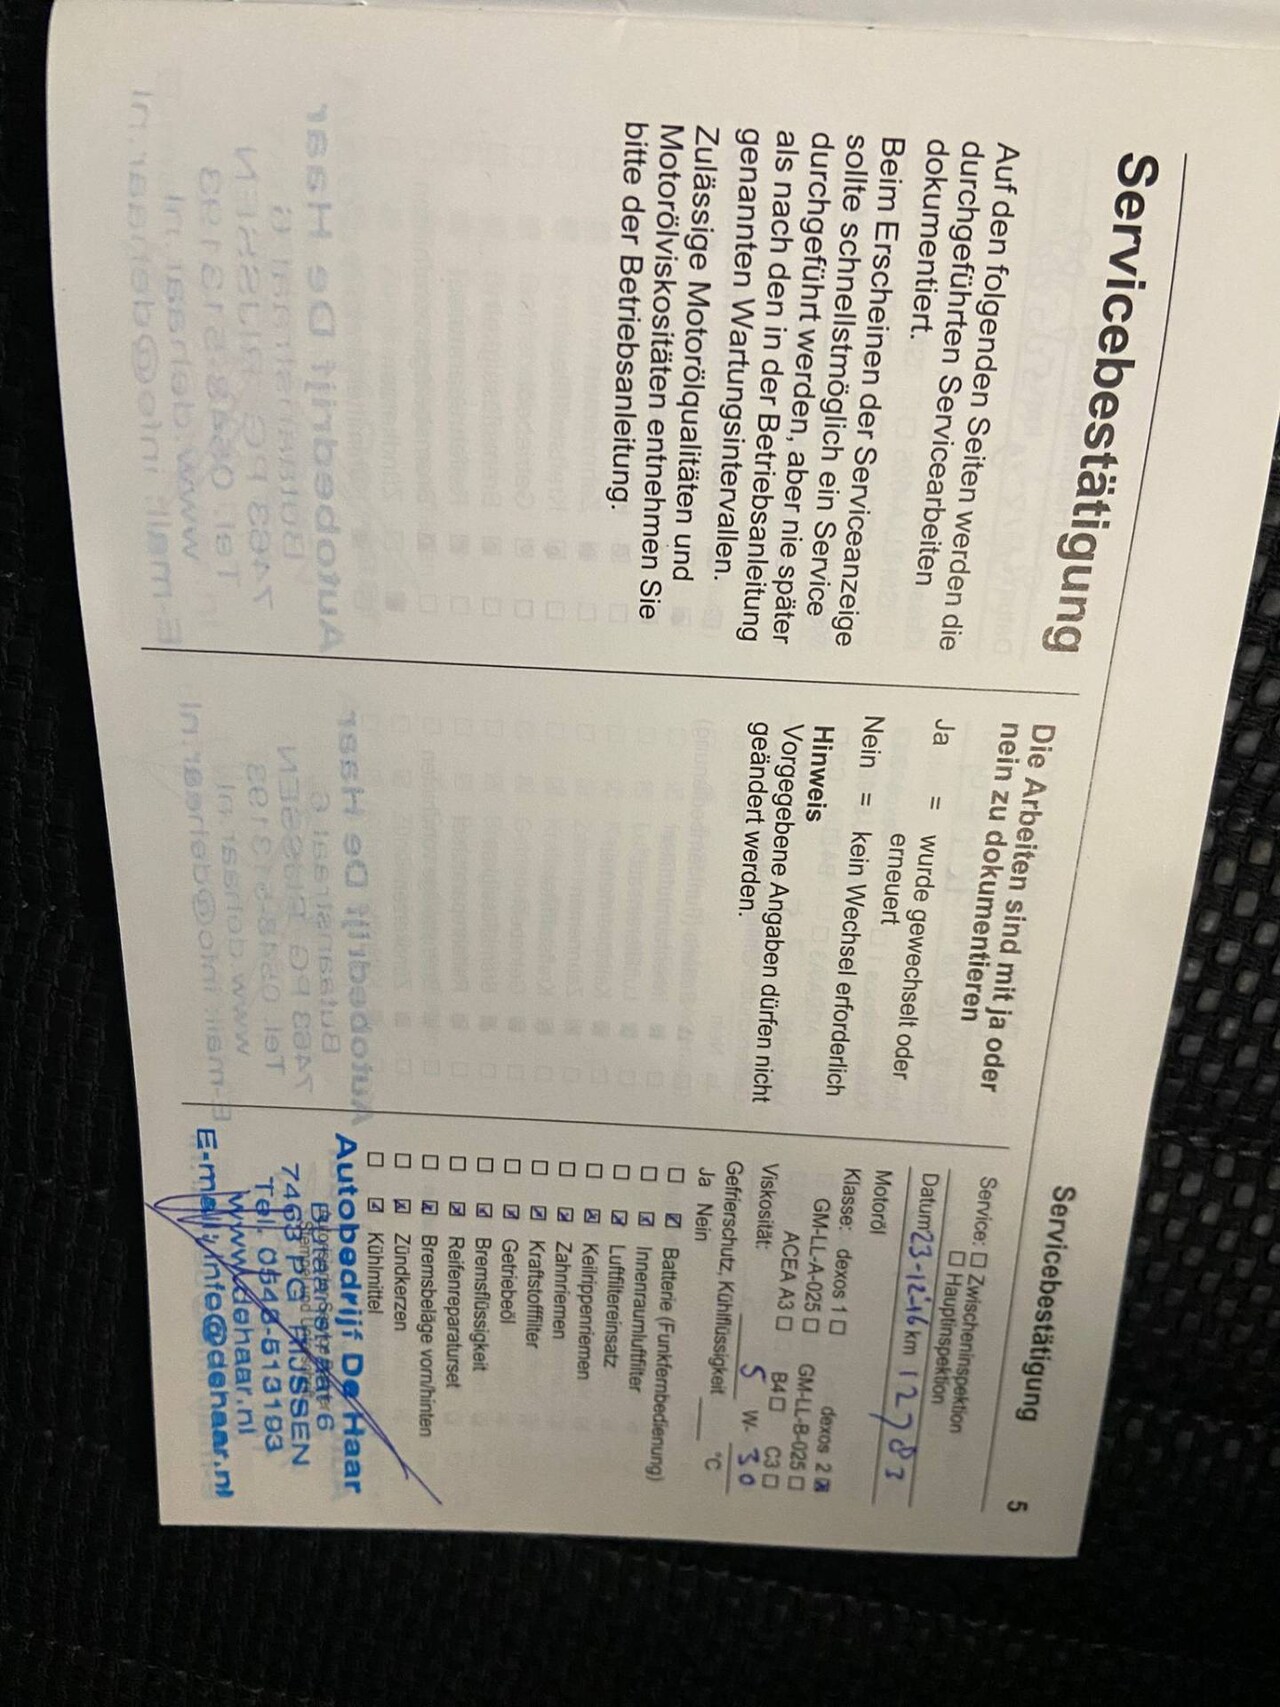 Servicebestätigung
Auf den folgenden Seiten werden die
durchgeführten Servicearbeiten
dokumentiert.
Beim Erscheinen der Serviceanzeige
sollte schnellstmöglich ein Service
durchgeführt werden, aber nie später
als nach den in der Betriebsanleitung
genannten Wartungsintervallen.
Zulässige Motorölqualitäten und
Motorölviskositäten entnehmen Sie
bitte der Betriebsanleitung.
Die Arbeiten sind mit ja oder
nein zu dokumentieren
Ja = wurde gewechselt oder
erneuert
Nein = kein Wechsel erforderlich
Hinweis
Vorgegebene Angaben dürfen nicht
geändert werden.
Servicebestätigung 5
Service: ☐ Zwischeninspektion
☐ Hauptinspektion
Datum 23-12-16 km 12783
Motoröl
Klasse: dexos 1 ☐ dexos 2 ☒
GM-LL-A-025 ☐ GM-LL-B-025 ☐
ACEA A3 ☐ B4 ☐ C3 ☐
Viskosität: 5 W- 30
Gefrierschutz, Kühlflüssigkeit °C
Ja Nein
☐ ☒ Batterie (Funkfernbedienung)
☐ ☒ Innenraumluftfilter
☐ ☒ Luftfiltereinsatz
☐ ☒ Keilrippenriemen
☐ ☒ Zahnriemen
☐ ☒ Kraftstofffilter
☐ ☒ Getriebeöl
☐ ☒ Bremsflüssigkeit
☐ ☒ Reifenreparaturset
☐ ☒ Bremsbeläge vorn/hinten
☐ ☒ Zündkerzen
☐ ☒ Kühlmittel
Autobedrijf De Haar
7463 PG RIJSSEN
Tel. 0548-513193
www.dehaar.nl
E-mail: info@dehaar.nl